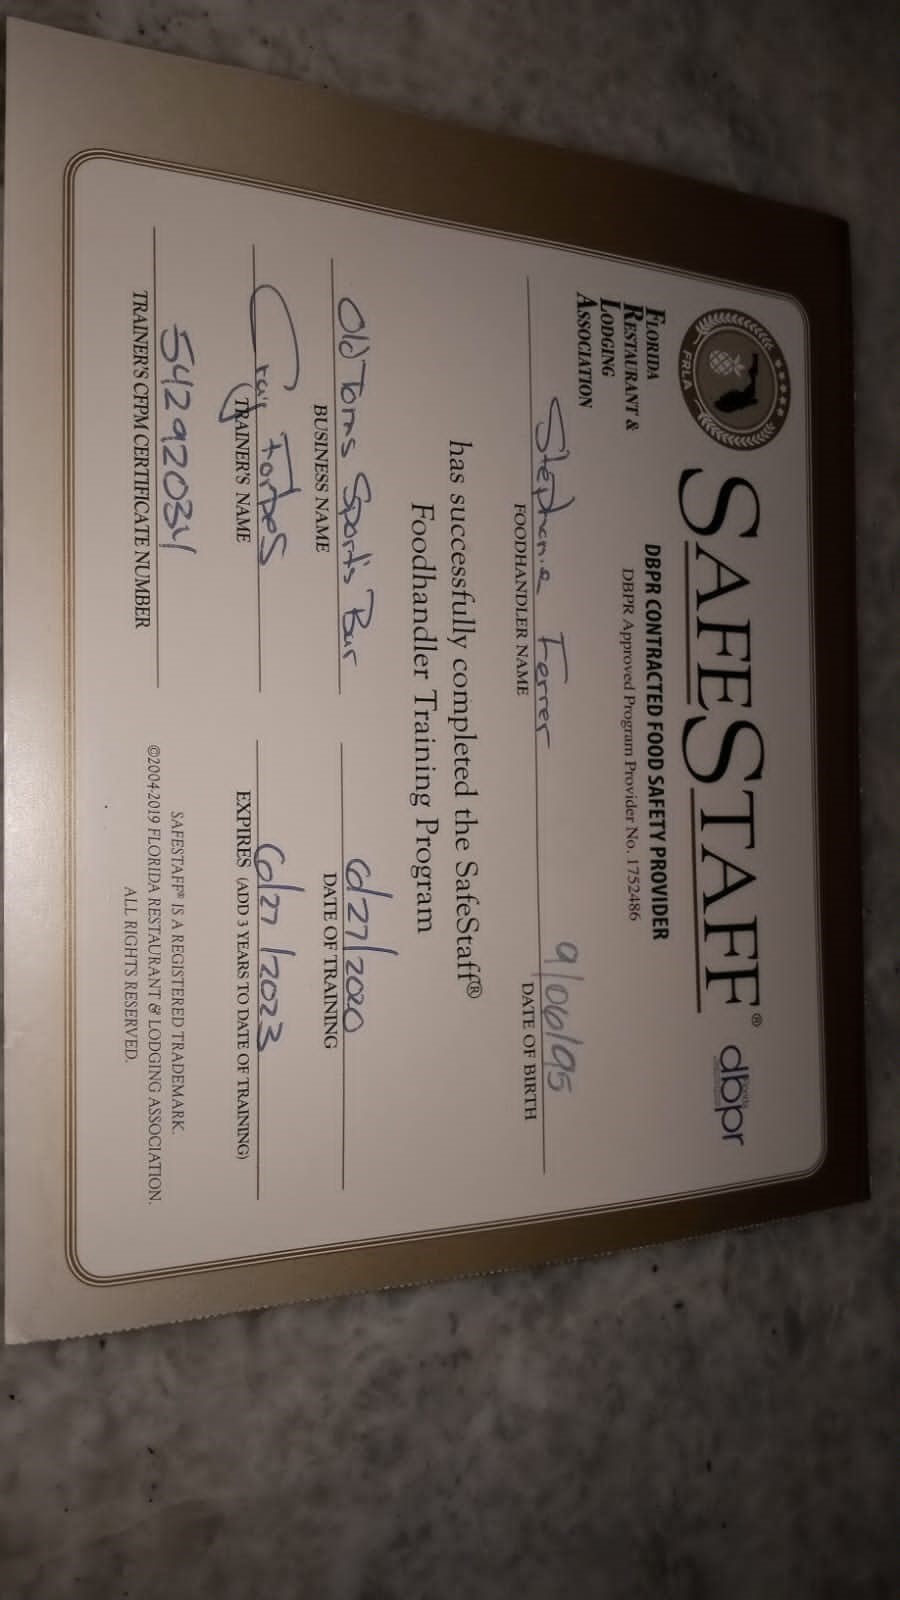 FRLA
SAFESTAFF®
Florida dbpr
FLORIDA
RESTAURANT &
LODGING
ASSOCIATION
DBPR CONTRACTED FOOD SAFETY PROVIDER
DBPR Approved Program Provider No. 1752486
Stephanie Ferrer 9/06/95
FOODHANDLER NAME DATE OF BIRTH
has successfully completed the SafeStaff®
Foodhandler Training Program
Old Toms Sports Bar 6/27/2020
BUSINESS NAME DATE OF TRAINING
Craig Forbes 6/27/2023
TRAINER'S NAME EXPIRES (ADD 3 YEARS TO DATE OF TRAINING)
54292034
TRAINER'S CFPM CERTIFICATE NUMBER
SAFESTAFF® IS A REGISTERED TRADEMARK.
©2004-2019 FLORIDA RESTAURANT & LODGING ASSOCIATION.
ALL RIGHTS RESERVED.